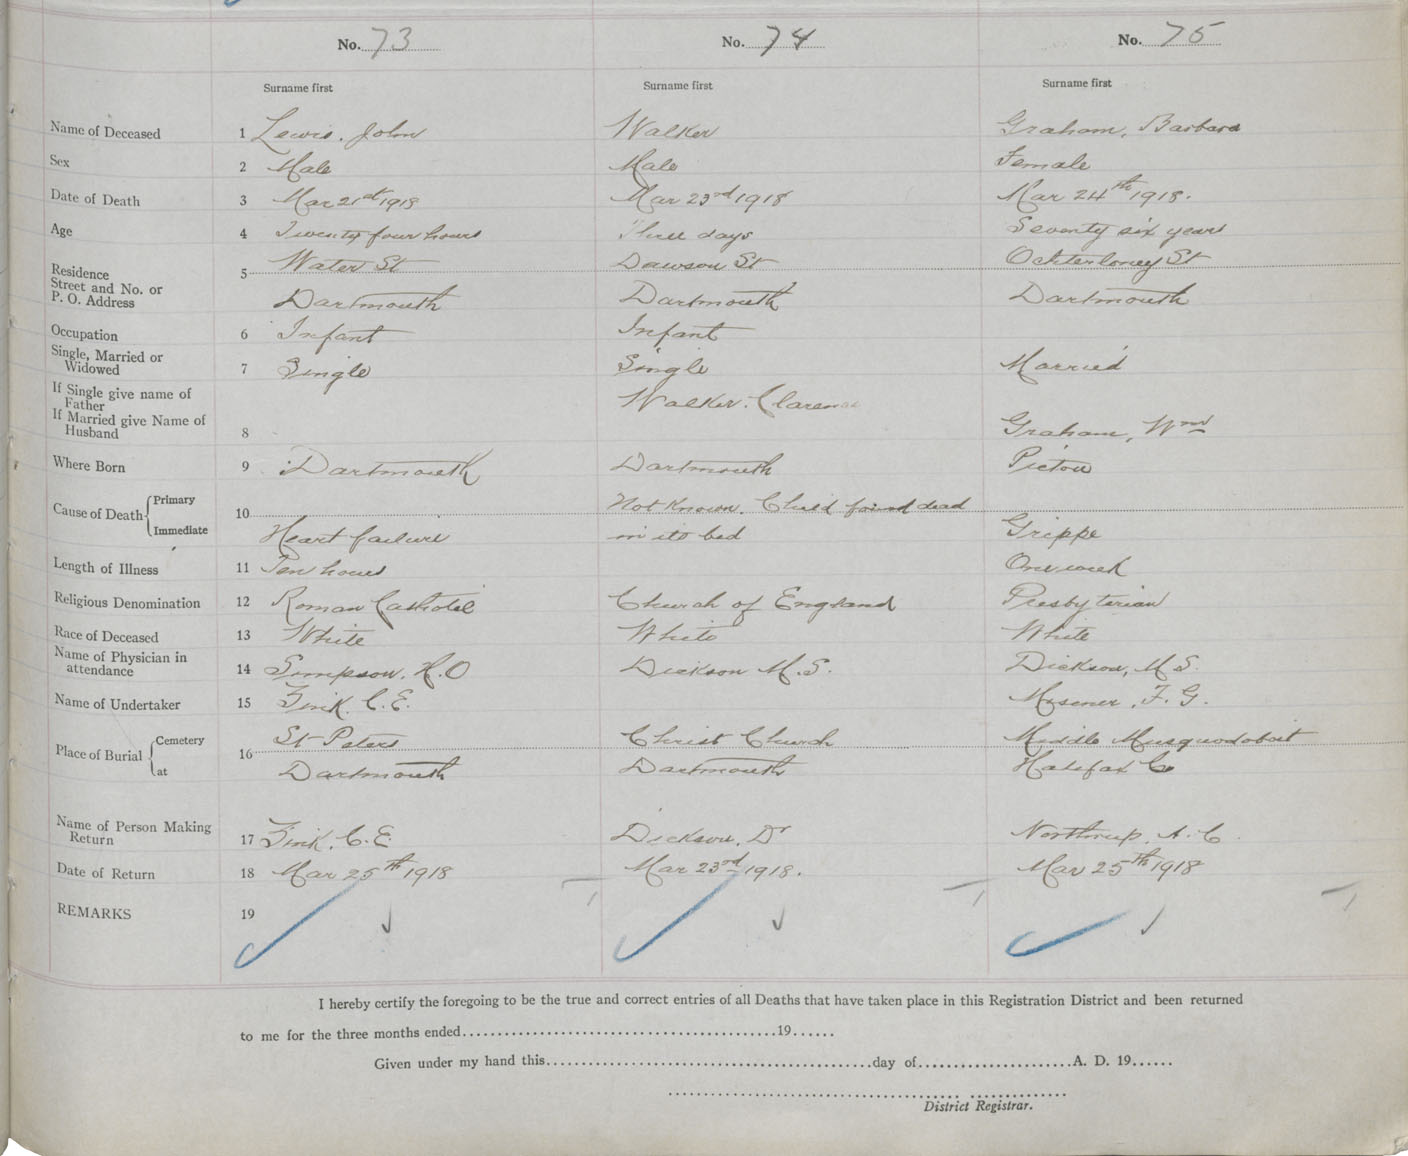 No. 73 No. 74 No. 75
Surname first Surname first Surname first
Name of Deceased 1 Lewis, John Walker Graham, Barbara
Sex 2 Male Male Female
Date of Death 3 Mar 21st 1918 Mar 23rd 1918 Mar 24th 1918.
Age 4 Twenty four hours Three days Seventy six years
Residence 5 Water St Dawson St Ochterloney St
Street and No. or
P. O. Address Dartmouth Dartmouth Dartmouth
Occupation 6 Infant Infant
Single, Married or
Widowed 7 Single Single Married
If Single give name of
Father Walker, Clarence
If Married give Name of
Husband 8 Graham, Wm
Where Born 9 Dartmouth Dartmouth Pictou
Cause of Death Primary 10 Not Known. Child found dead
Immediate Heart failure in its bed Grippe
Length of Illness 11 Ten hours One week
Religious Denomination 12 Roman Catholic Church of England Presbyterian
Race of Deceased 13 White White White
Name of Physician in
attendance 14 Simpson, H.O Dickson M.S. Dickson, M.S.
Name of Undertaker 15 Zink. C.E. Misener, F.G.
Place of Burial Cemetery 16 St Peters Christ Church Middle Musquodoboit
at Dartmouth Dartmouth Halifax Co
Name of Person Making
Return 17 Zink, C.E. Dickson, Dr Northrup, A.C.
Date of Return 18 Mar 25th 1918 Mar 23rd 1918. Mar 25th 1918
REMARKS 19
I hereby certify the foregoing to be the true and correct entries of all Deaths that have taken place in this Registration District and been returned
to me for the three months ended 19
Given under my hand this day of A. D. 19
District Registrar.